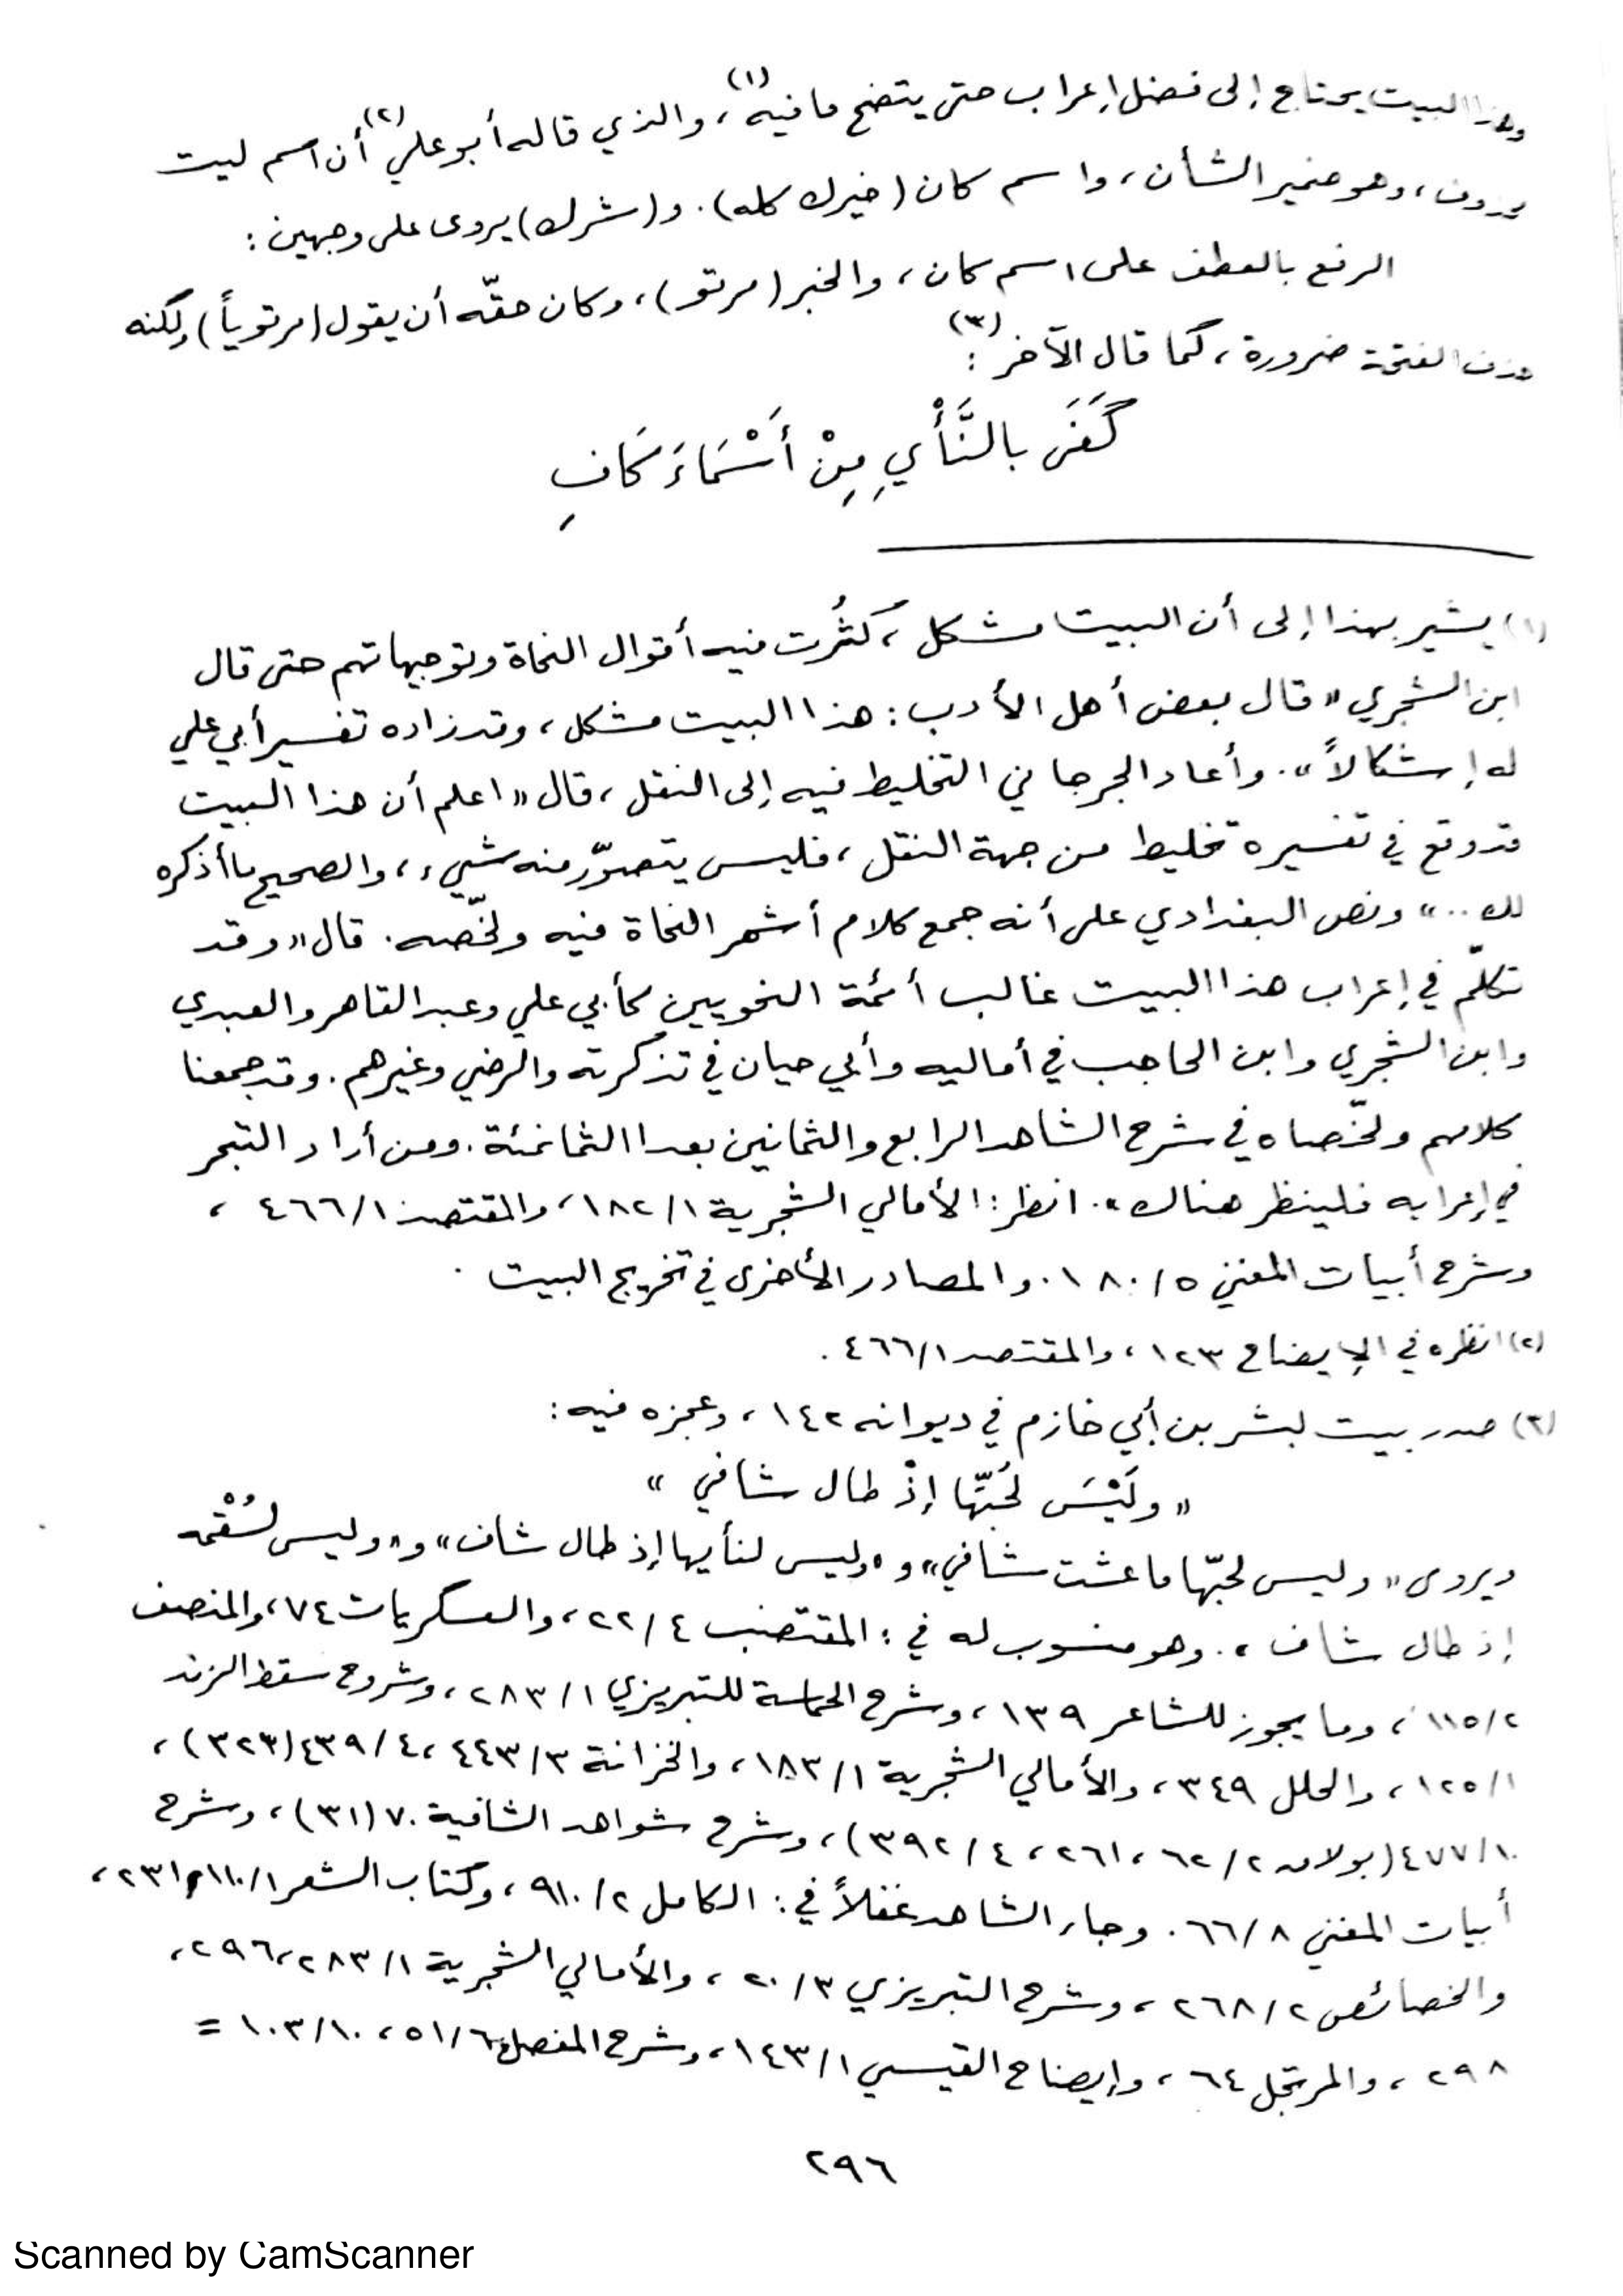 وهذا البيت يحتاج إلى فضل إعراب حتى يتضح ما فيه(١)، والذي قاله أبو علي(٢) أن اسم ليت
محذوف، وهو ضمير الشأن، واسم كان (خيرك كله). و(شرك) يروى على وجهين:
الرفع بالعطف على اسم كان، والخبر (مرتو)، وكان حقّه أن يقول (مرتوياً) ولكنه
حذف الفتحة ضرورة، كما قال الآخر(٣):
كَفَى بالنَّأْيِ مِنْ أَسْمَاءَ كَافِ
(١) يشير بهذا إلى أن البيت مشكل، كثُرت فيه أقوال النحاة وتوجيهاتهم حتى قال
ابن الشجري «قال بعض أهل الأدب: هذا البيت مشكل، وقد زاده تفسير أبي علي
له إشكالاً». وأعاد الجرجاني التخليط فيه إلى النقل، قال «اعلم أن هذا البيت
قد وقع في تفسيره تخليط من جهة النقل، فليس يتصوّر منه شيء، والصحيح ما أذكره
لك..» ونص البغدادي على أنه جمع كلام أشهر النحاة فيه ولخّصه. قال «وقد
تكلّم في إعراب هذا البيت غالب أئمة النحويين كأبي علي وعبد القاهر والعبدي
وابن الشجري وابن الحاجب في أماليه وأبي حيان في تذكرته والرضي وغيرهم. وقد جمعنا
كلامهم ولخّصناه في شرح الشاهد الرابع والثمانين بعد الثمانمئة. ومن أراد التبحر
في إعرابه فلينظر هناك». انظر: الأمالي الشجرية ١/١٨٢، والمقتصد ١/٤٦٦،
وشرح أبيات المغني ٥/١٨٠. والمصادر الأخرى في تخريج البيت.
(٢) انظره في الإيضاح ١٢٣، والمقتصد ١/٤٦٦.
(٣) صدر بيت لبشر بن أبي خازم في ديوانه ١٤٢، وعجزه فيه:
« وَلَيْسَ لِحُبِّها إذْ طال شافي »
ويروى «وليس لحبّها ما عشت شافي» و«وليس لنأيها إذ طال شاف» و«وليس لسُقْمه
إذ طال شاف». وهو منسوب له في: المقتضب ٤/٢٢، والعسكريات ٧٤، والمنصف
٢/١١٥، وما يجوز للشاعر ١٣٩، وشرح الحماسة للتبريزي ١/٢٨٣، وشروح سقط الزند
١/١٢٥، والحلل ٣٤٩، والأمالي الشجرية ١/١٨٣، والخزانة ٣/٤٤٣، ٤/٤٣٩ (٣٢٣)،
١٠/٤٧٧ (بولاق ٢/٦٢، ٢٦١، ٤/٣٩٢)، وشرح شواهد الشافية ٧٠ (٣١)، وشرح
أبيات المغني ٨/٦٦. وجاء الشاهد غفلاً في: الكامل ٢/٩١٠، وكتاب الشعر ١/١١٠و٢٣١،
والخصائص ٢/٢٦٨، وشرح التبريزي ٣/٢٠، والأمالي الشجرية ١/٢٨٣، ٢٩٦،
٢٩٨، والمرتجل ٦٤، وإيضاح القيسي ١/١٤٣، وشرح المفصل ٦/٥١، ١٠/١٠٣ =
٢٩٦
Scanned by CamScanner